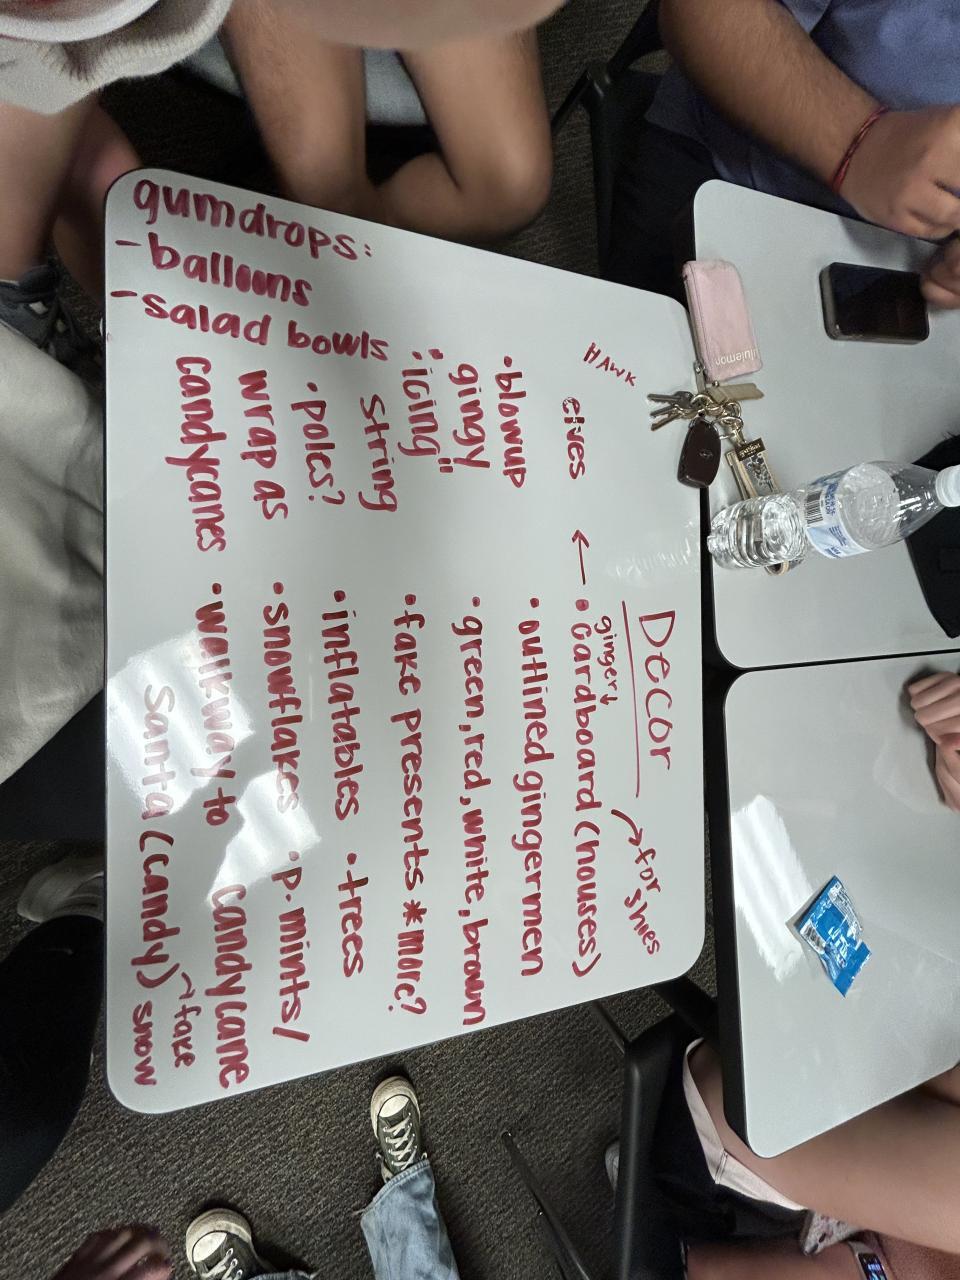 Decor
gingery
• cardboard (houses)
for shies
• outlined gingermen
• green, red, white, brown
• fake presents * more?
• inflatables • trees
• snowflakes • p.mints/
candycane
• walkway to
Santa (candy)
fake
snow
HAWK
eives
• blowup
gingy
• "icing"
string
• poles?
wrap as
candycanes
gumdrops:
- balloons
- salad bowls
lululemon